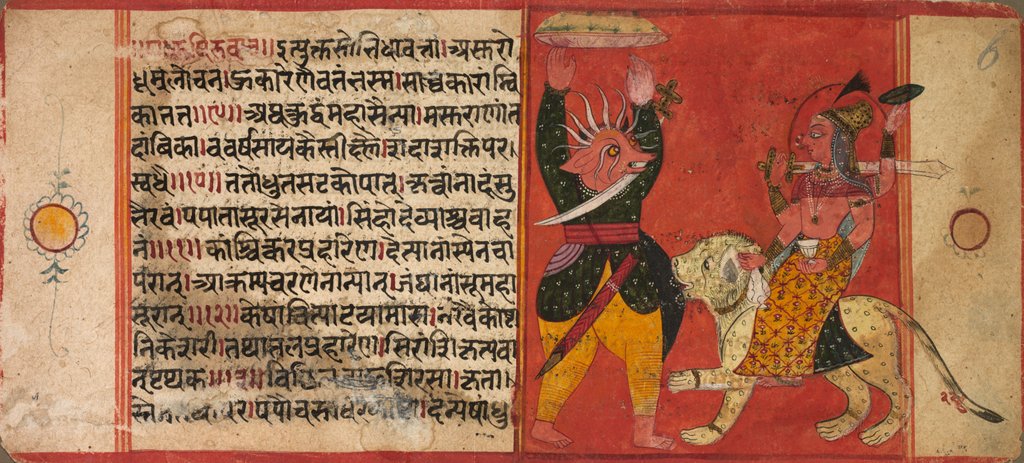 ॥ऋषिरुवाच॥ इत्युक्तसो निधावत्तां।असुरो
धूम्रलोचन।हूंकारेणैव तं भस्म।सा चकाराम्बि
का तत॥९॥ अथ क्रुद्धं महासैन्या।मसुराणां त
दांबिका।ववर्ष सायकैस्तीक्ष्णै।
स्वधै॥१०॥ ततो धुतसटकोपात्।कृत्वा नादं सु
भैरवं।पपातासुरसेनायां।सिंहो देव्याश्च वाह
नं॥११॥ कांश्चित्करप्रहारेण।दैत्यानास्येन चा
परान्।आक्रम्य चरणेनान्यान्।जघानासुमहा
सुरान्॥१२॥ केषांचित्पाटयामास।नखै कोष्टा
नि केशरी।तथा तलप्रहारेण।सिरांशि कृतवा
न्पृथक॥१३॥ शिरसा।कृता
पपौच दन्येषां धु
6